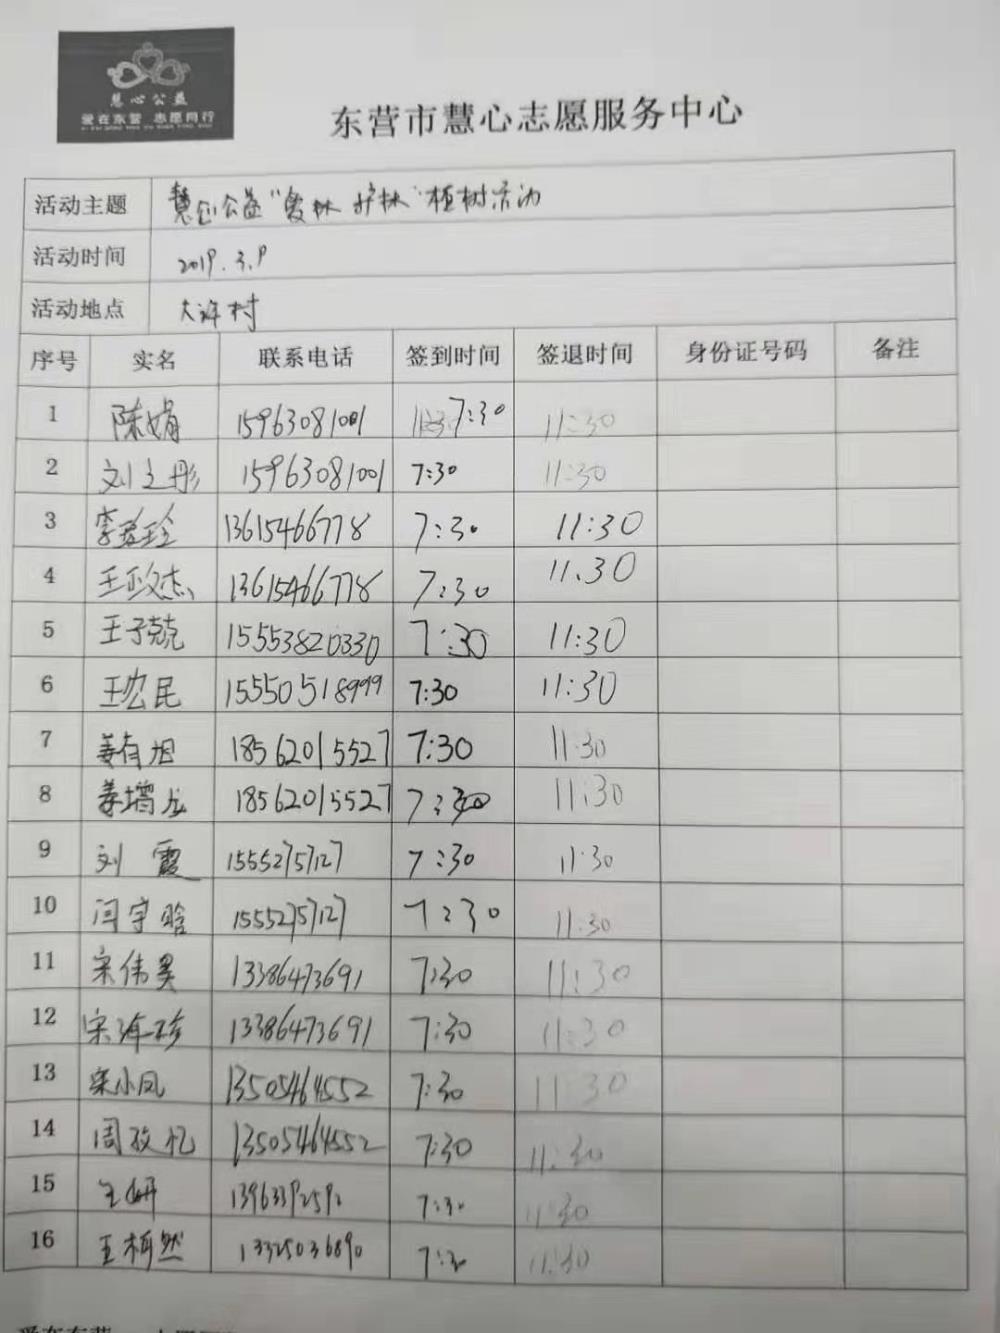 慧心公益
爱在东营 志愿同行
东营市慧心志愿服务中心
活动主题 慧心公益“爱林 护林”植树活动
活动时间 2019.3.9
活动地点 大许村
序号 实名 联系电话 签到时间 签退时间 身份证号码 备注
1 陈娟 15963081001 7:30 11:30
2 刘文彤 15963081001 7:30 11:30
3 李爱玲 13615466778 7:30 11:30
4 王政杰 13615466778 7:30 11.30
5 王子兢 15553820330 7:30 11:30
6 王宏民 15550518999 7:30 11:30
7 姜有旭 18562015527 7:30 11:30
8 姜增龙 18562015527 7:30 11:30
9 刘霞 15552757127 7:30 11:30
10 闫宇晗 15552757127 7:30 11:30
11 宋伟昊 13386473691 7:30 11:30
12 宋海珍 13386473691 7:30 11:30
13 宋小凤 13505464552 7:30 11:30
14 周孜忆 13505464552 7:30 11:30
15 王妍 13963392592 7:30 11:30
16 王柯然 13325036890 7:30 11:30